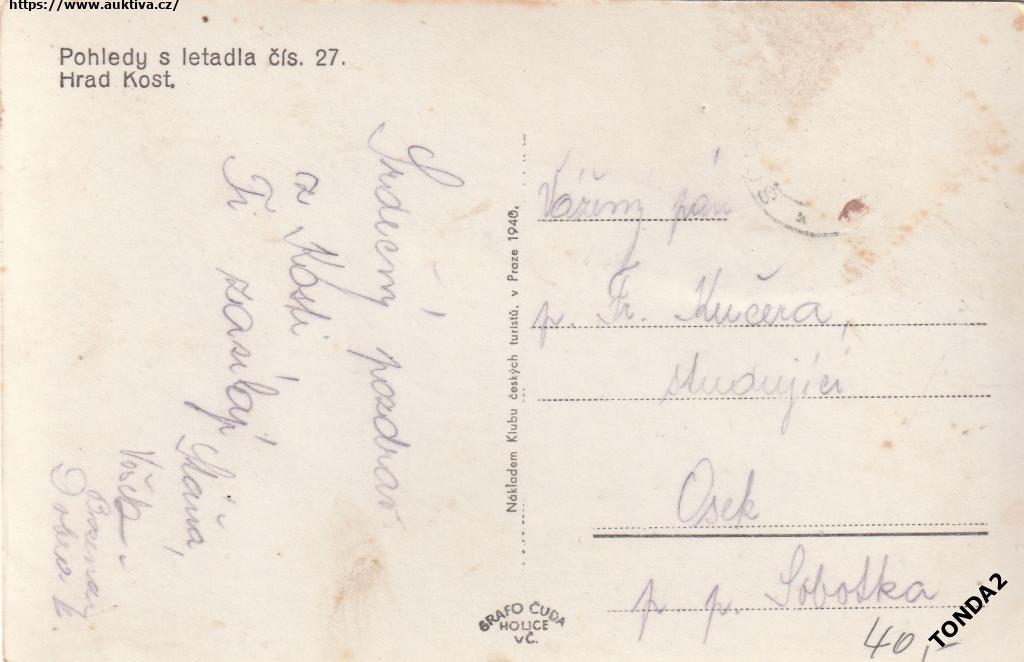 https://www.auktiva.cz/
Pohledy s letadla čís. 27.
Hrad Kost.
Srdečný pozdrav
z Kosti
Ti zasílají
Máňa,
Vašek
Nákladem Klubu českých turistů, v Praze 1940.
Vážený pán
p. Fr. Kučera,
studující
Osek
p. p. Sobotka
GRAFO ČUDA
HOLICE
VČ.
40,-
TONDA2